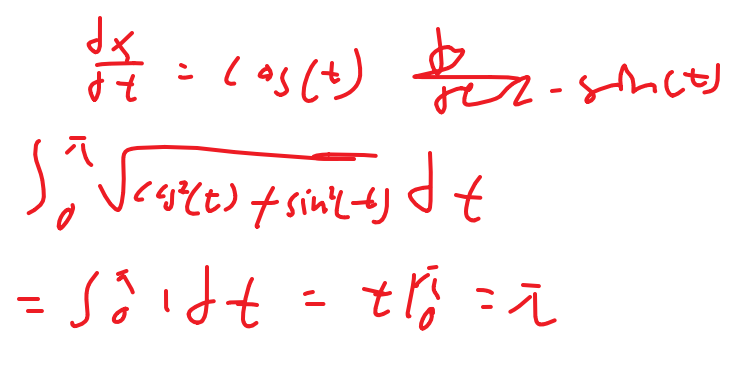 dx/dt = cos(t) - sin(t)
∫₀^π √(cos²(t) + sin²(t)) dt
= ∫₀^π 1 dt = t |₀^π = π